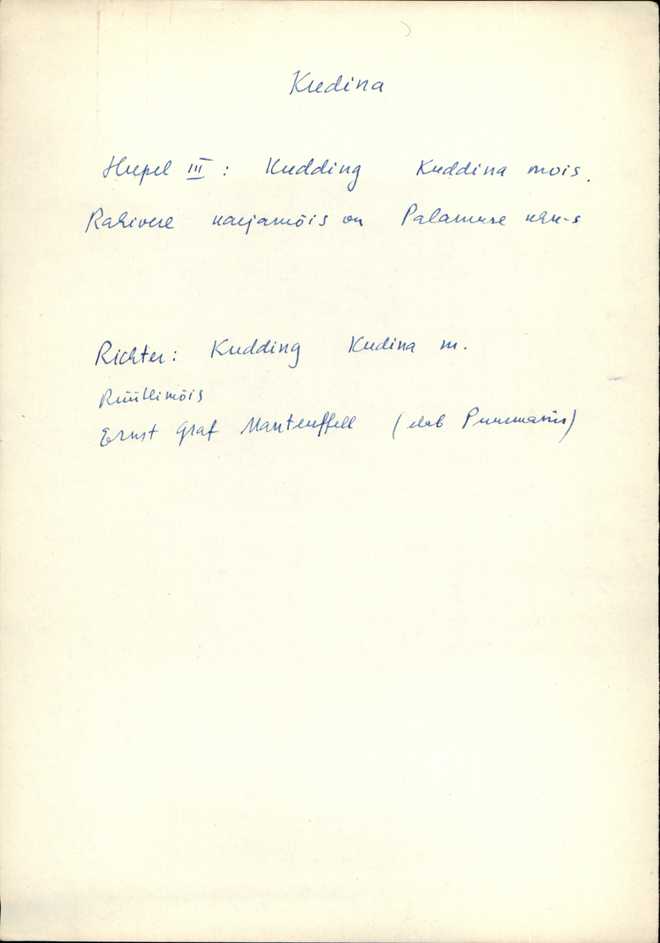 Kudina
Hupel III : Kudding Kuddina mois.
Rahivere karjamõis on Palamuse khk-s
Richter: Kudding Kudina m.
Rüütlimõis
Ernst Graf Manteuffell (elab Puurmanis)